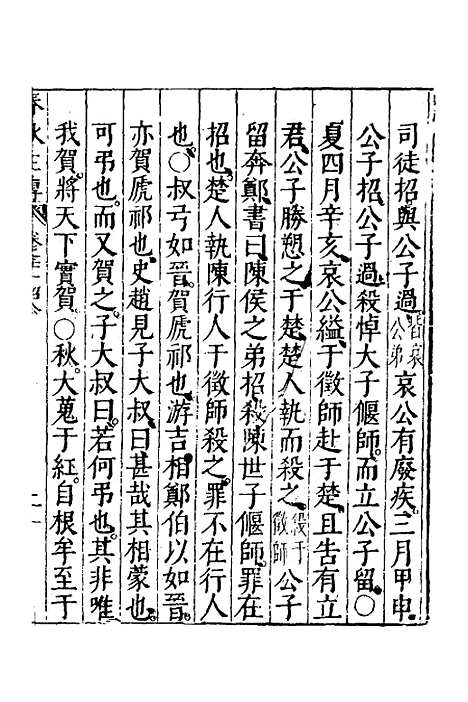 司徒招與公子過皆哀公弟哀公有廢疾三月甲申
公子招公子過殺悼大子偃師而立公子留〇
夏四月辛亥哀公縊于徵師赴于楚且告有立
君公子勝愬之于楚楚人執而殺之殺于徵師公子
留奔鄭書曰陳侯之弟招殺陳世子偃師罪在
招也楚人執陳行人于徵師殺之罪不在行人
也〇叔弓如晉賀虒祁也游吉相鄭伯以如晉
亦賀虒祁也史趙見子大叔曰甚哉其相蒙也
可弔也而又賀之子大叔曰若何弔也其非唯
我賀將天下實賀〇秋大蒐于紅自根牟至于
春秋左傳